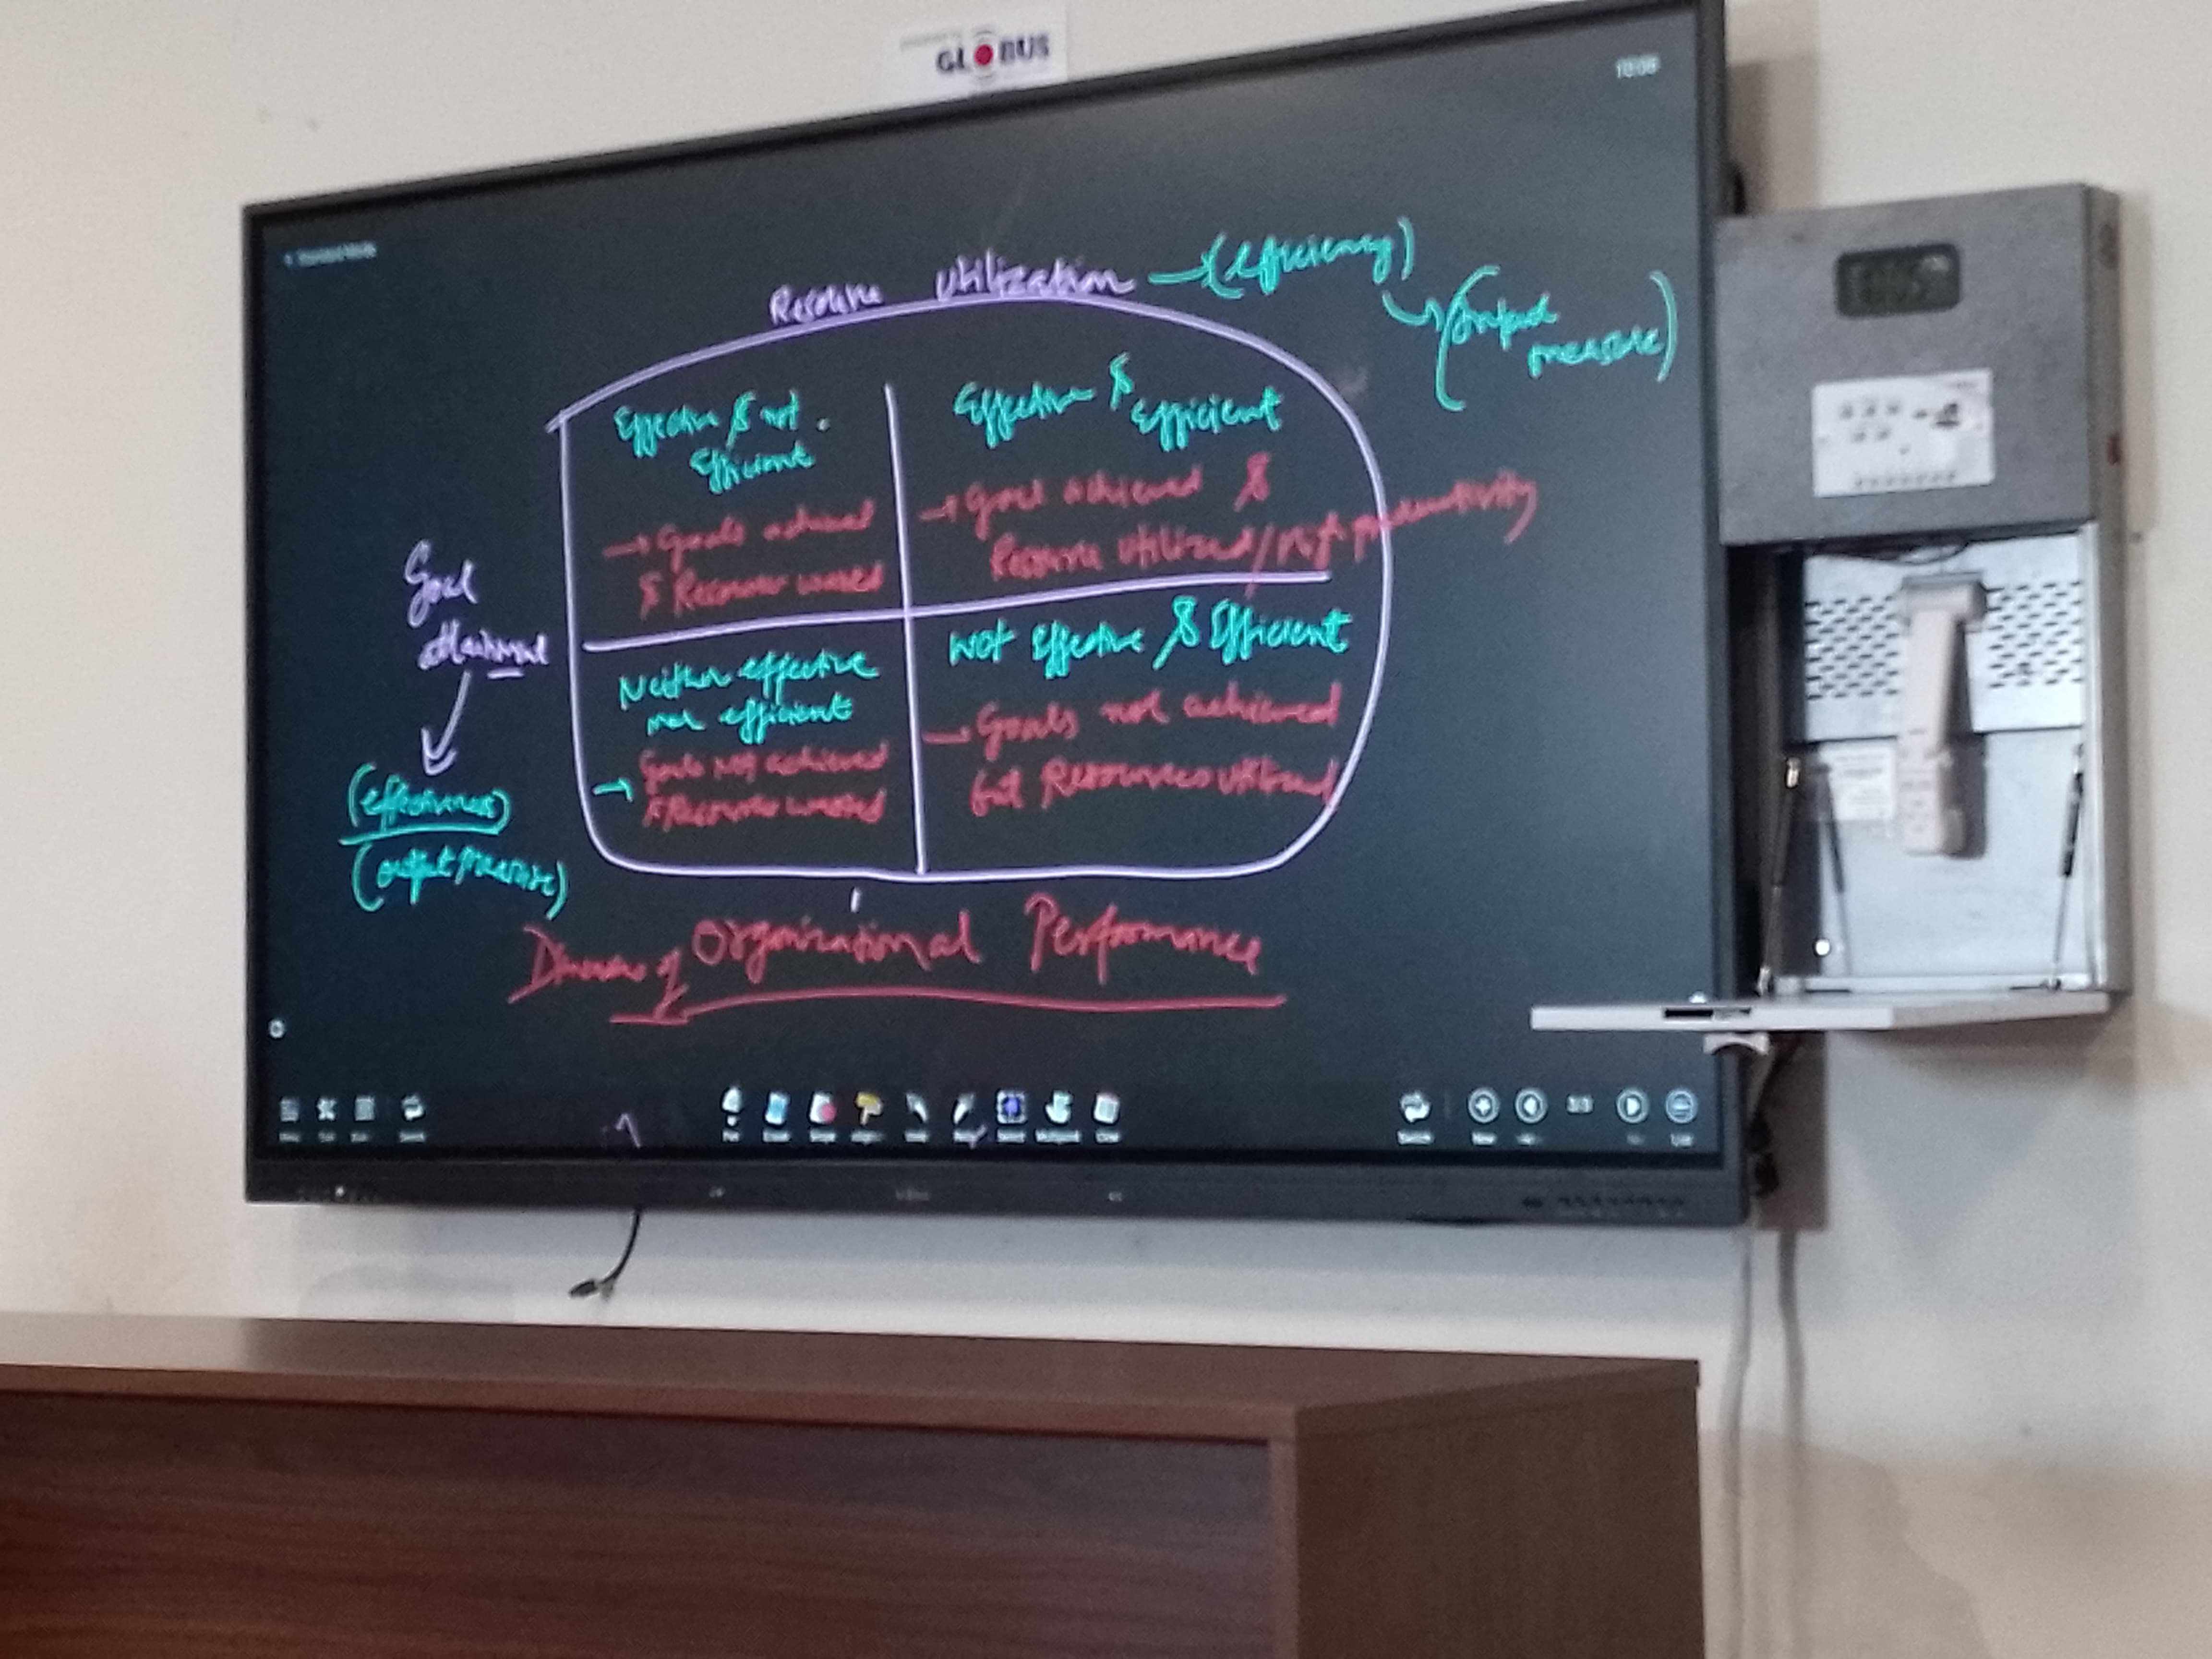 GLOBUS
Resource Utilization → (efficiency)
measure)
Effective & not
Efficient
→ Goals achieved
& Resources wasted
Effective & efficient
→ Goal achieved &
Resource Utilized / High productivity
Goal
attainment
(effectiveness)
(output measure)
Neither effective
nor efficient
→ Goals not achieved
& Resources wasted
Not Effective & Efficient
→ Goals not achieved
but Resources utilized
of Organizational Performance